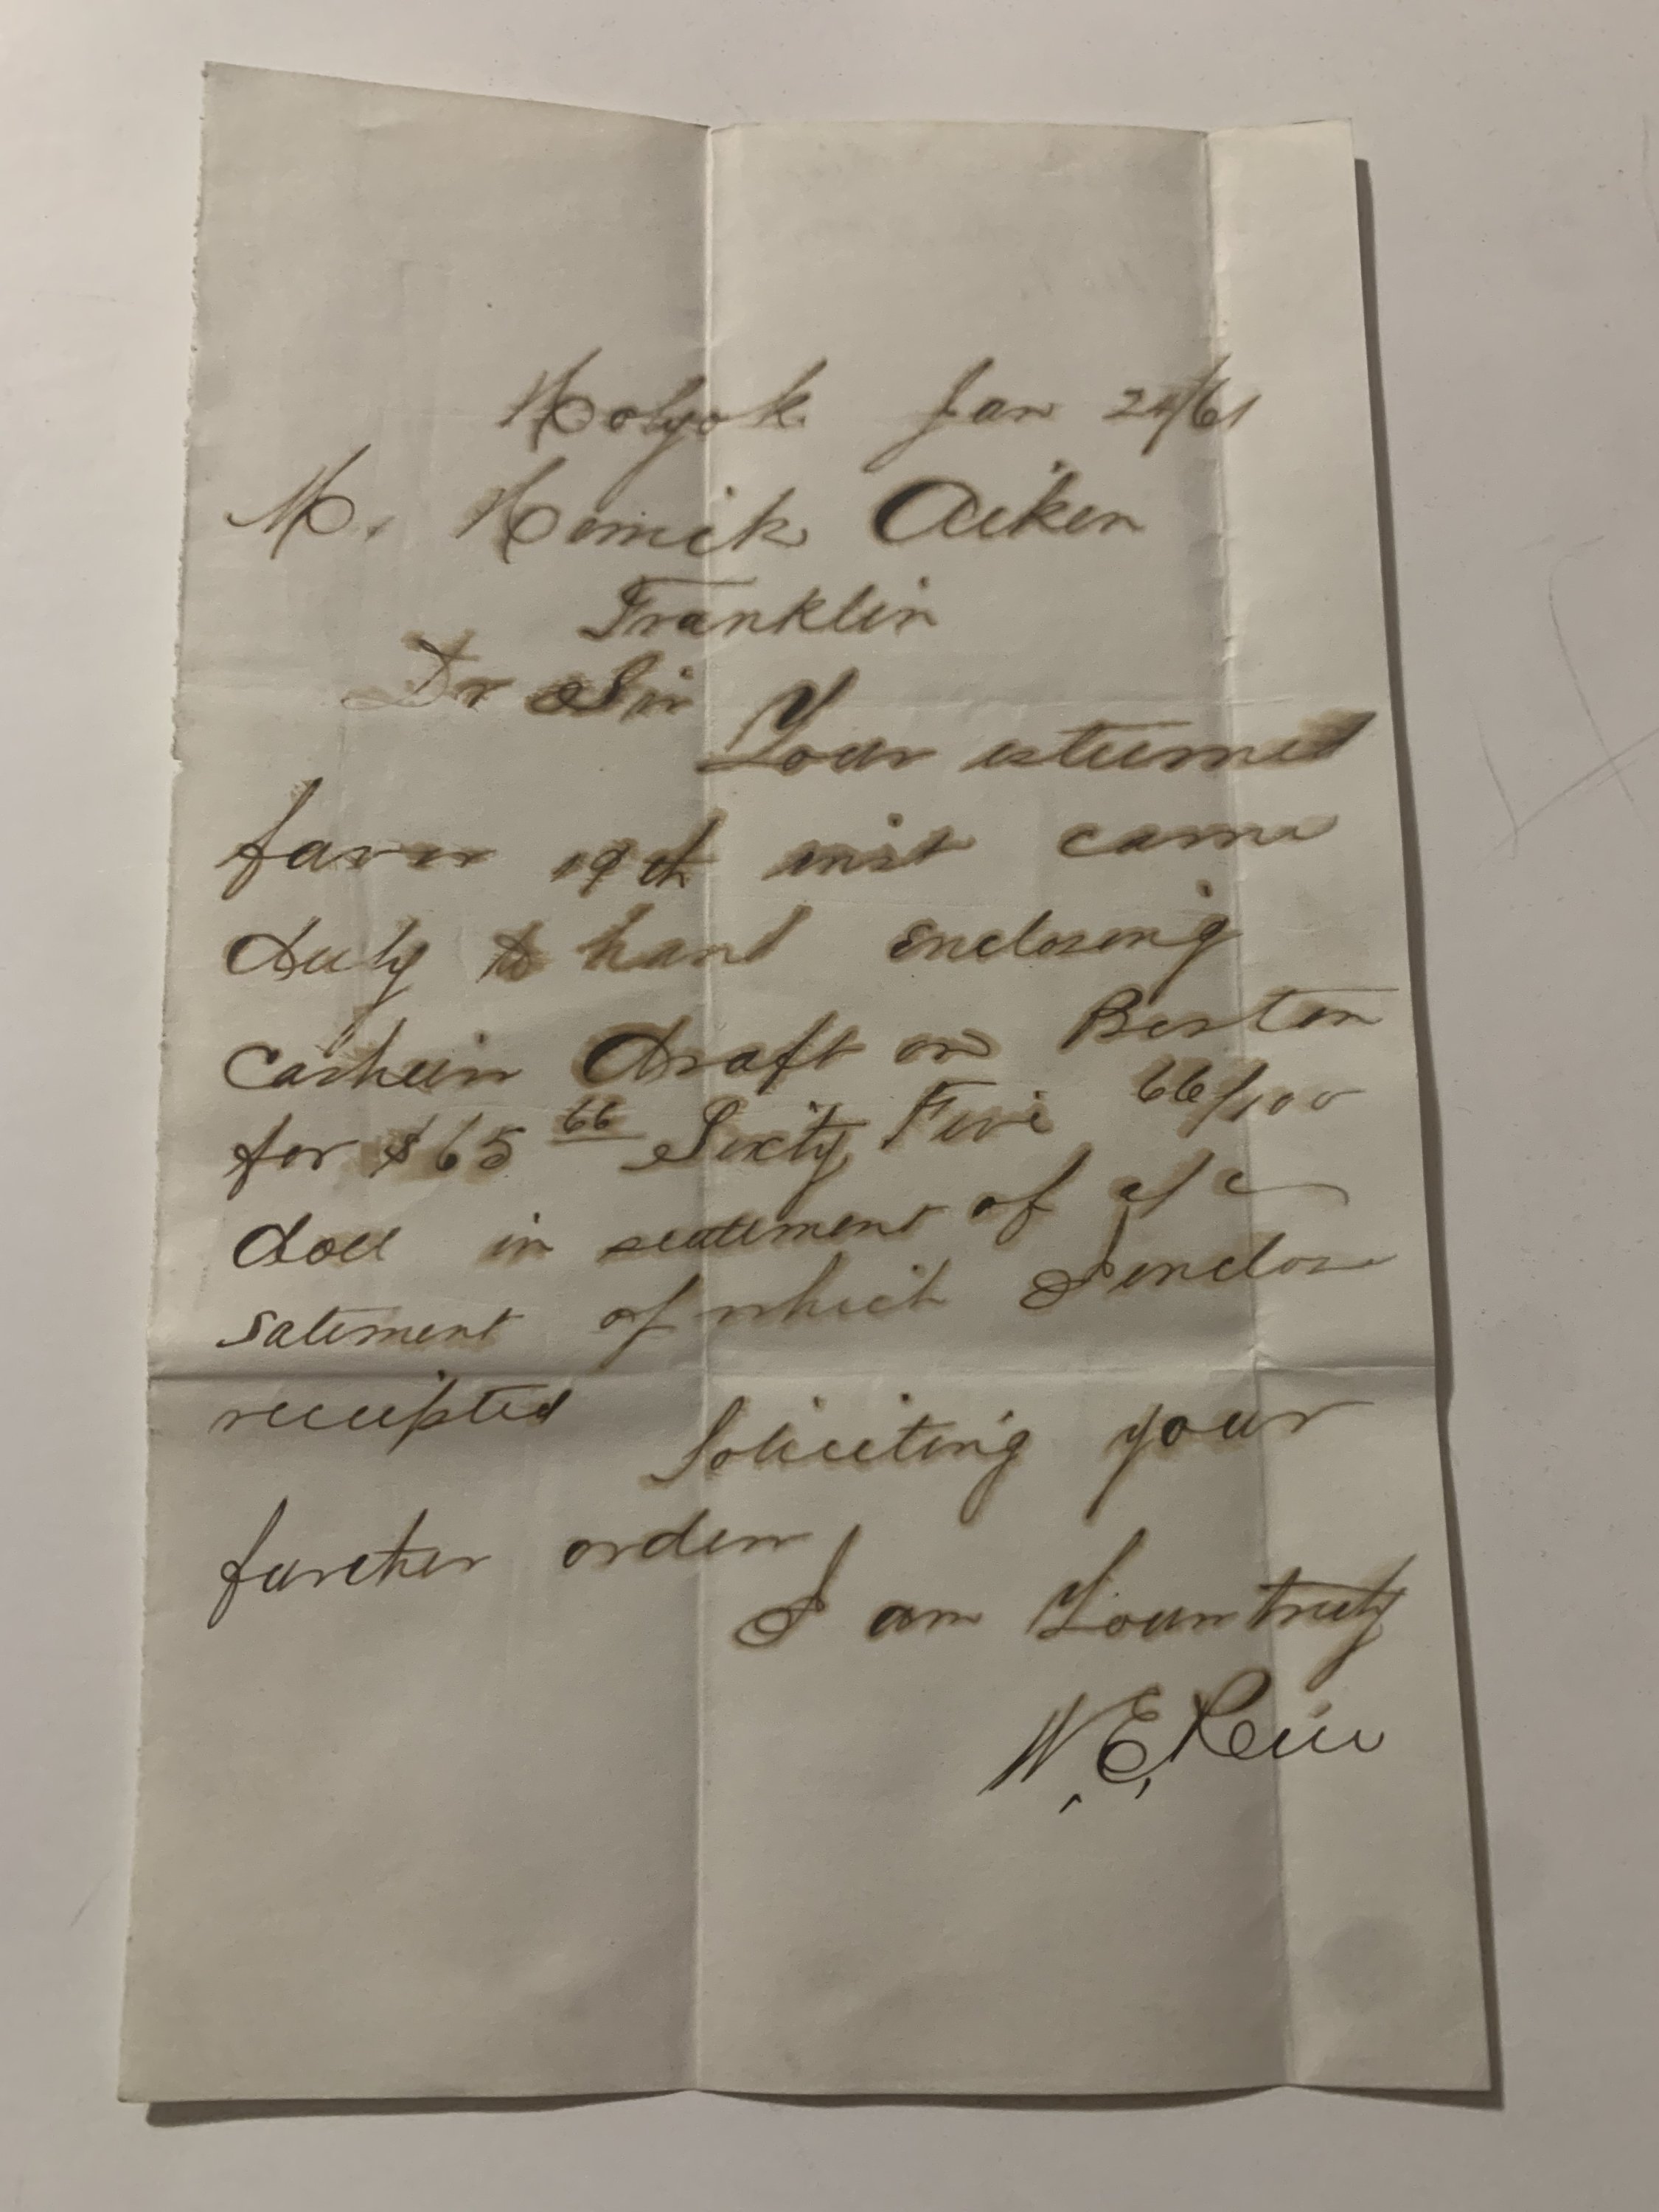 Holyok Jan 24/61
M. Herrick Aiken
Franklin
Dr Sir
Your esteemed
favor 19th inst came
duly to hand enclosing
Cashiers draft on Boston
for $65 66 Sixty Five 66/100
doll in settlement of a/c
satement of which I enclose
receipted
Soliciting your
further orders
I am Yours truly
W. E.